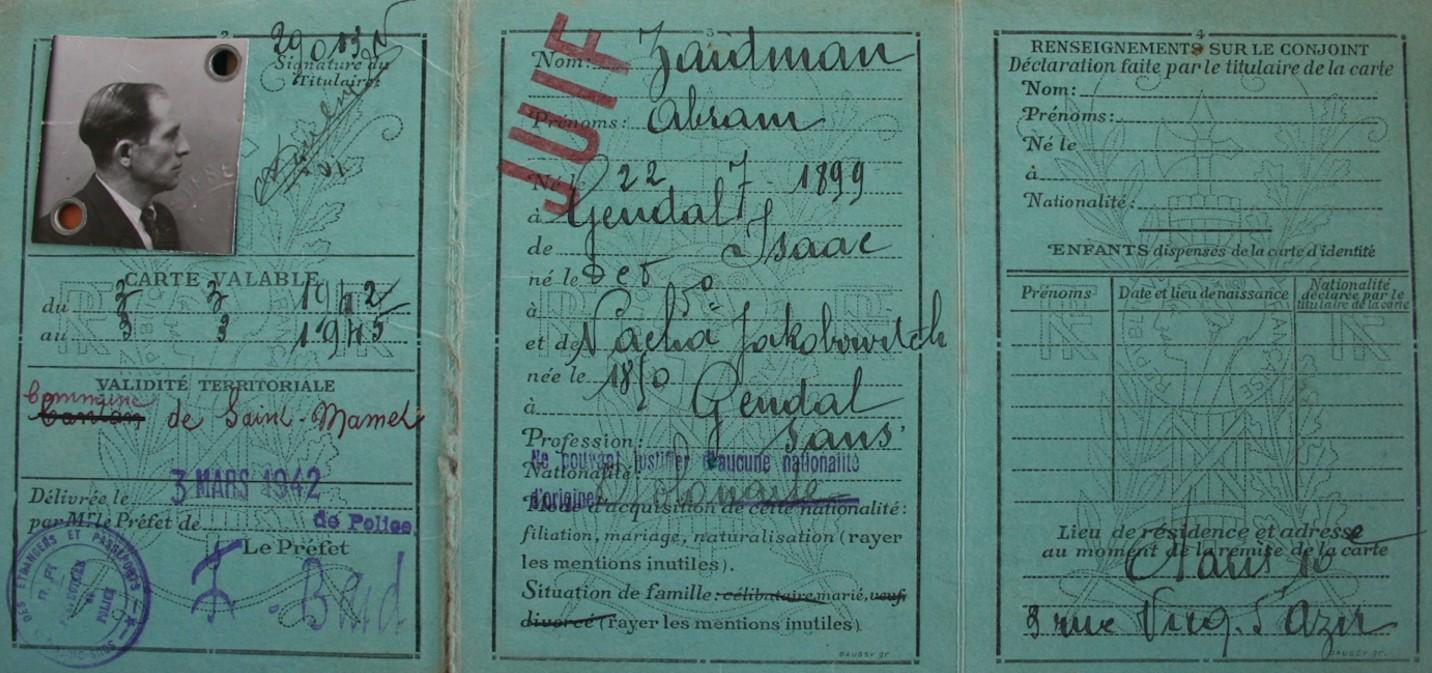 2
Signature du
Titulaire:
CARTE VALABLE
du 3 3 1942
au 3 3 1945
VALIDITÉ TERRITORIALE
Commune
Canton de Saint-Mamet
Délivrée le 3 MARS 1942
par Mr le Préfet de de Police
Le Préfet
DES ETRANGERS ET PASSEPORTS
3
JUIF
Nom: Zaidman
Prénoms: Abram
Né le 22 7 1899
à Gendal
de Isaac
né le Dec
à
et de Nacha Jakobowitch
née le
à Gendal
Profession: sans
Ne pouvant justifier d'aucune nationalité
Nationalité:
d'origine Polonaise
Mode d'acquisition de cette nationalité:
filiation, mariage, naturalisation (rayer
les mentions inutiles).
Situation de famille: célibataire, marié, veuf,
divorcé (rayer les mentions inutiles)
GAUSSY gr.
4
RENSEIGNEMENTS SUR LE CONJOINT
Déclaration faite par le titulaire de la carte
Nom:
Prénoms:
Né le
à
Nationalité:
ENFANTS dispensés de la carte d'identité
Prénoms Date et lieu de naissance Nationalité déclarée par le titulaire de la carte
Lieu de résidence et adresse
au moment de la remise de la carte
Paris 10
3 rue Vicq. d'Azir
GAUSSY gr.